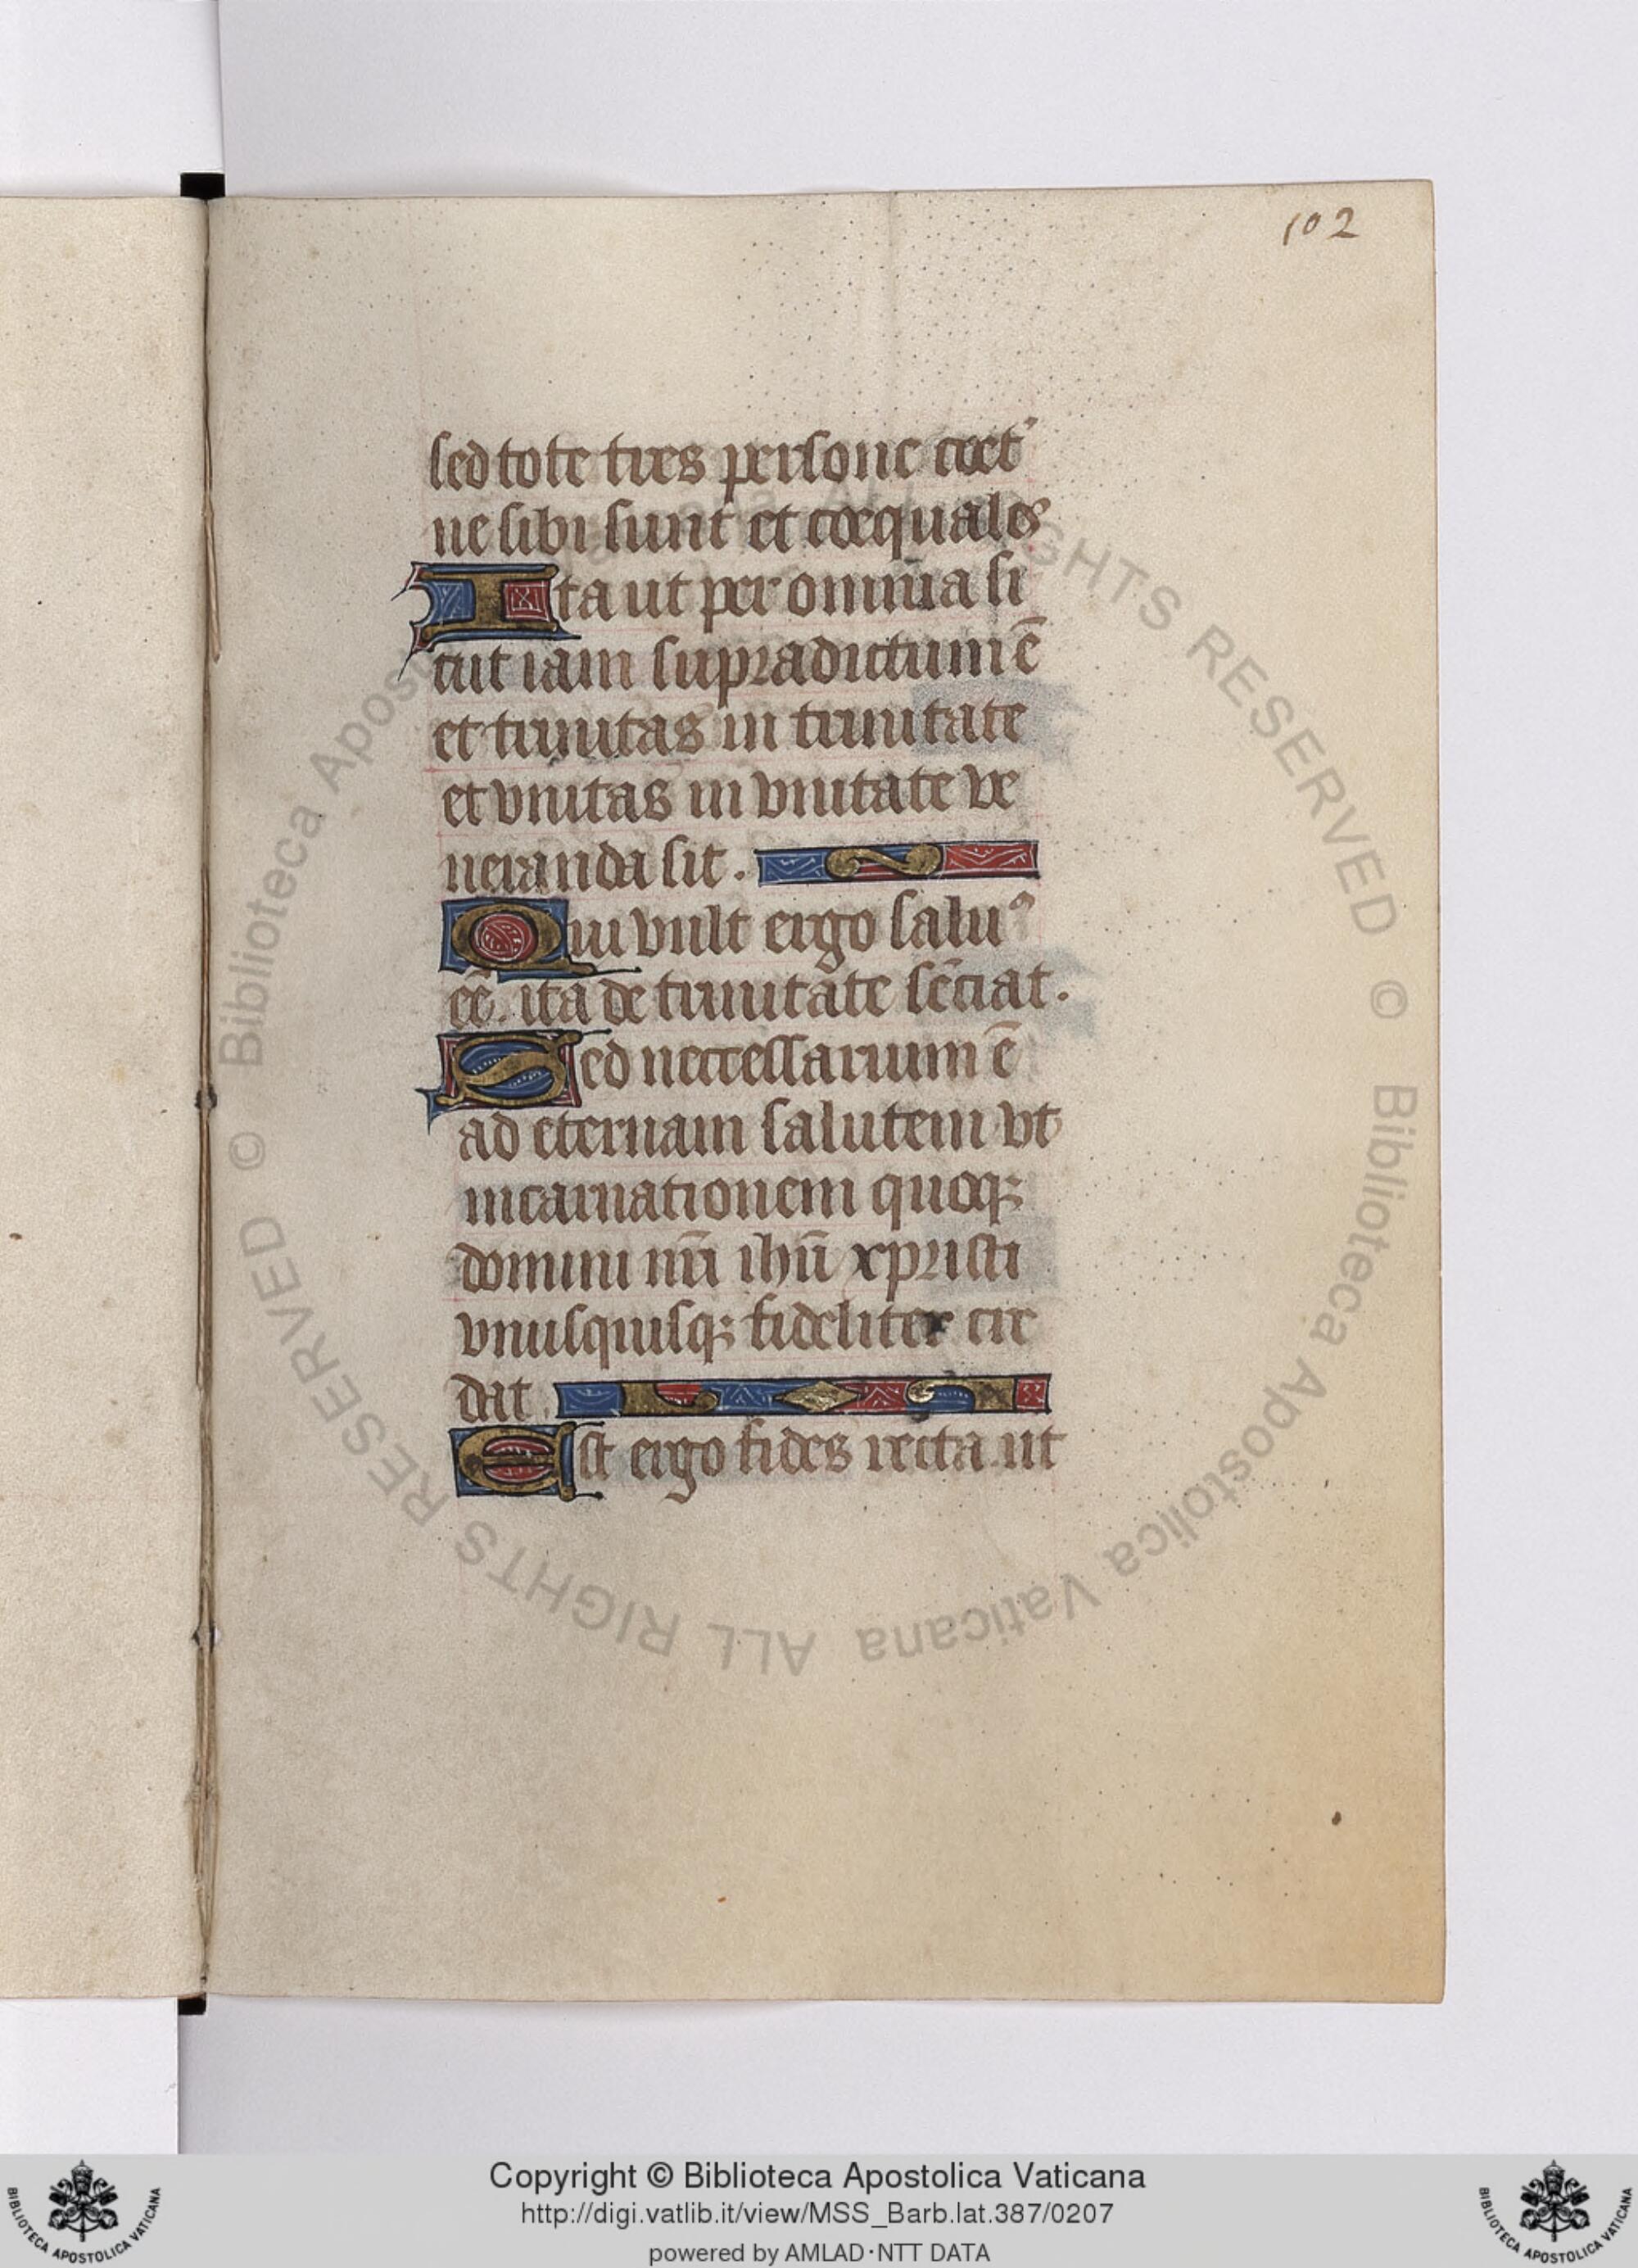 102
sed tote tres persone coet᾽
ne sibi sunt et coequales
Ita ut per omnia si
cut iam supradictum ē
et trinitas in trinitate
et vnitas in vnitate ve
neranda sit.
Qui vult ergo saluꝰ
eē. ita de trinitate sēciat.
Sed neccessarium ē
ad eternam salutem vt
incarnationem quoqꝫ
domini nr̄i ihū xpristi
vnusquisqꝫ fideliter cre
dat.
Est ergo fides recta ut
© Biblioteca Apostolica Vaticana ALL RIGHTS RESERVED © Biblioteca Apostolica Vaticana ALL RIGHTS RESERVED
Copyright © Biblioteca Apostolica Vaticana
http://digi.vatlib.it/view/MSS_Barb.lat.387/0207
powered by AMLAD·NTT DATA
BIBLIOTECA APOSTOLICA VATICANA
BIBLIOTECA APOSTOLICA VATICANA